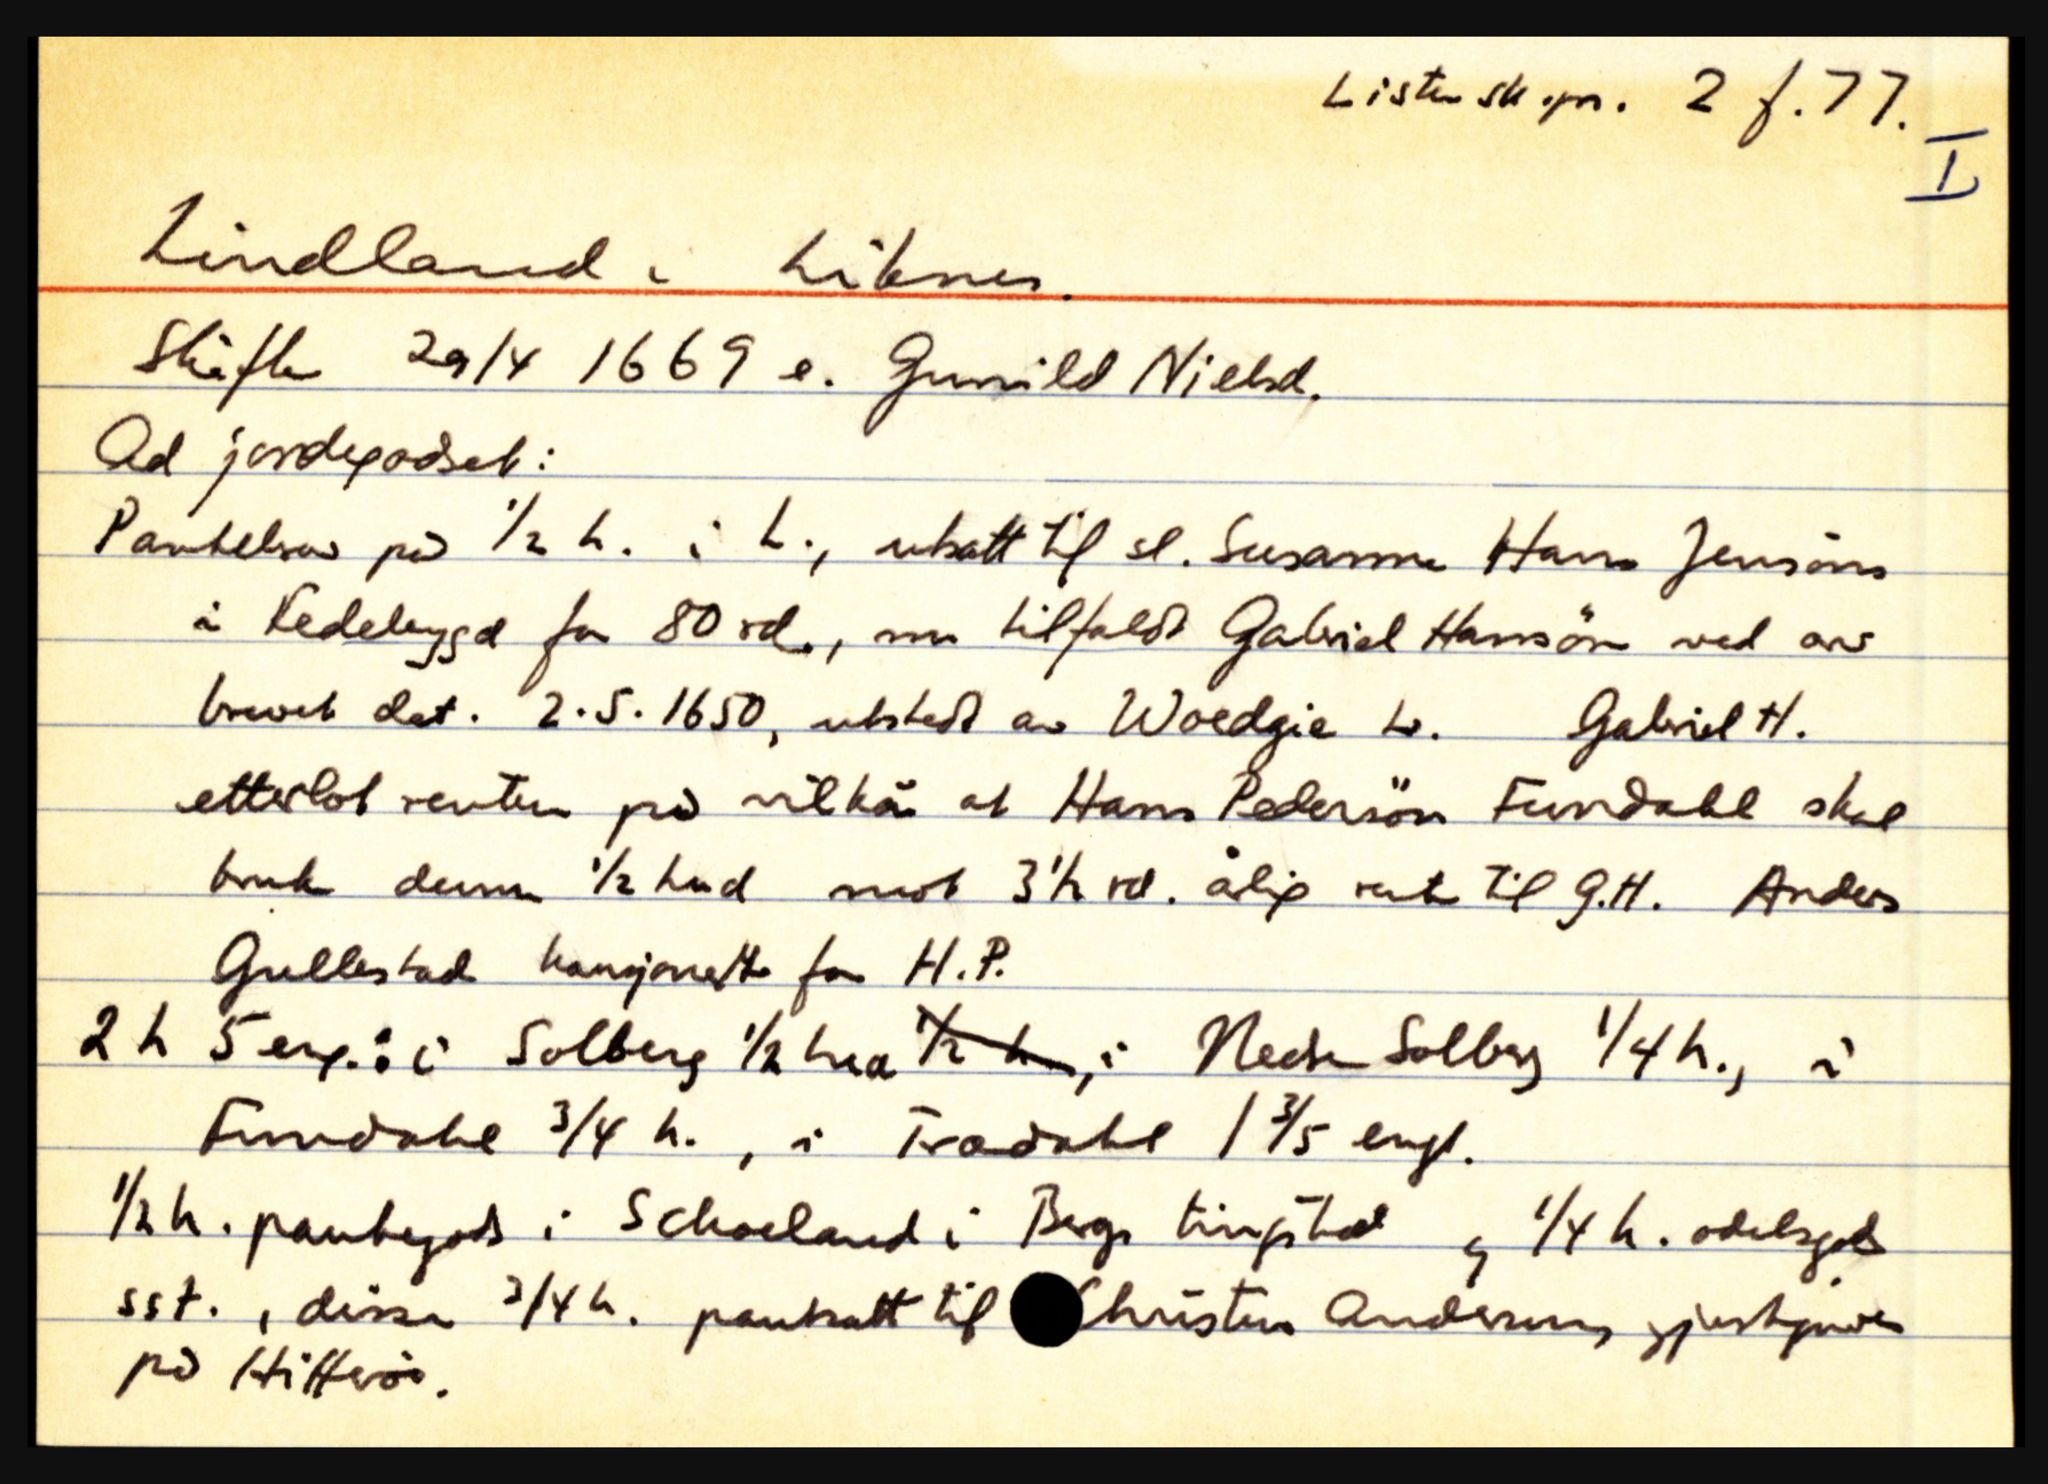 Lister sk.pr. 2 f. 77.
I
Lindland i Liknes.
Skifte 29/4 1669 e. Gunnild Nielsd.
Ad jordegodset:
Pantebrev på 1/2 h. i L., utsatt til sl. Susanna Hans Jensöns
i Fedebygd for 80 rd., nu tilfaldt Gabriel Hansön ved arv
brevet dat. 2.5.1650, utstedt av Woedgie L. Gabriel H.
etterlot renten på vilkår at Hans Pedersön Fundahl skal
bruke denne 1/2 hud mot 3 1/2 rd. årlig rente til G.H. Anders
Gullestad kausjonerte for H.P.
2 h 5 eng.: i Solberg 1/2 hud 1/2 h., i Nedre Solberg 1/4 h., i
Fundahl 3/4 h., i Tradahl 1 3/5 engl.
1/2 h. pantegods i Schoeland i Bergs tingsted og 1/4 h. odelsgods
sst., disse 3/4 h. pantsatt til Christen Andersen, gjestgiver
på Hitterö.